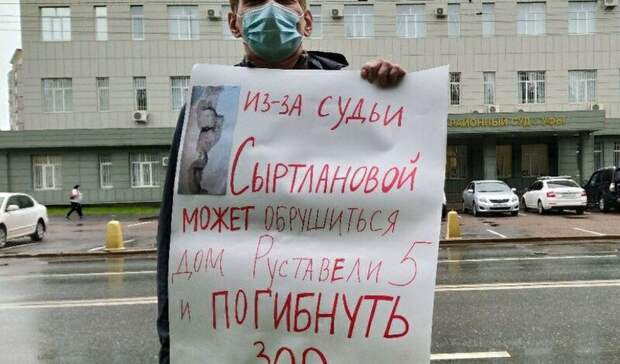 РАЙОННЫЙ СУД Г. УФЫ
ИЗ-ЗА СУДЬИ
СЫРТЛАНОВОЙ
МОЖЕТ ОБРУШИТЬСЯ
ДОМ РУСТАВЕЛИ 5
И ПОГИБНУТЬ
300